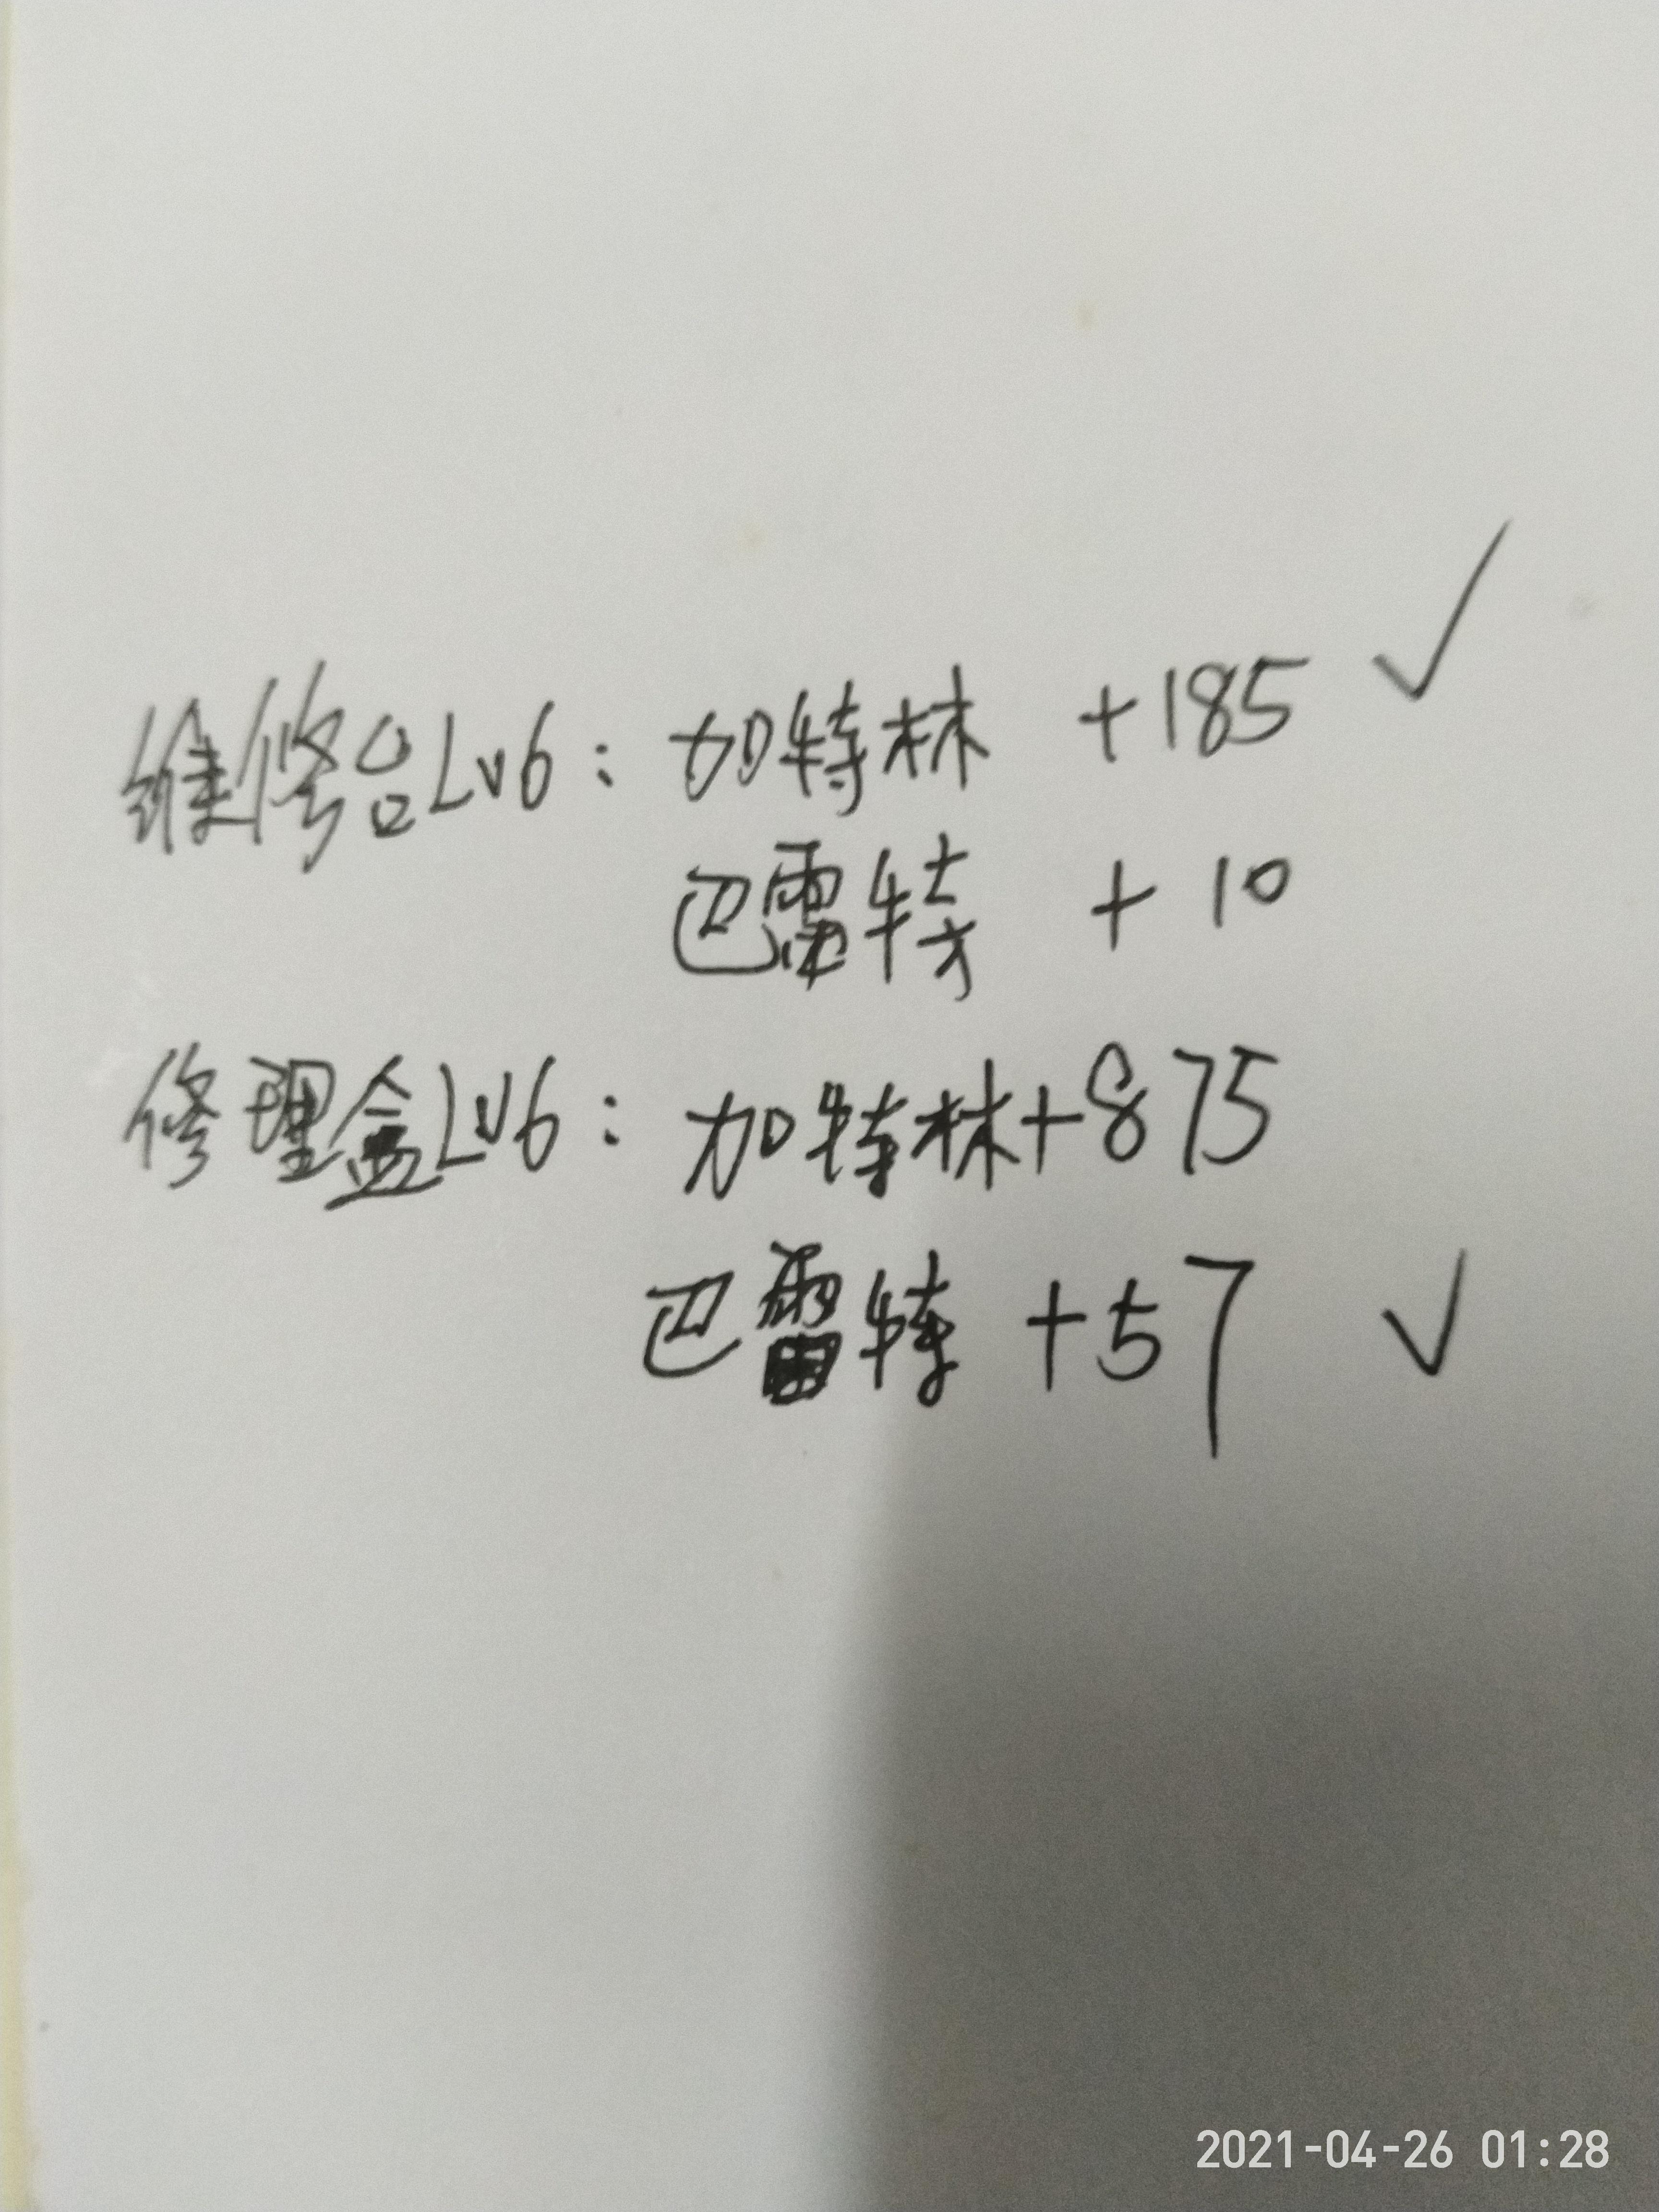 维修台Lv6：加特林 +185 ✓
巴雷特 +10
修理盒Lv6：加特林+875
巴雷特 +57 ✓
2021-04-26 01:28